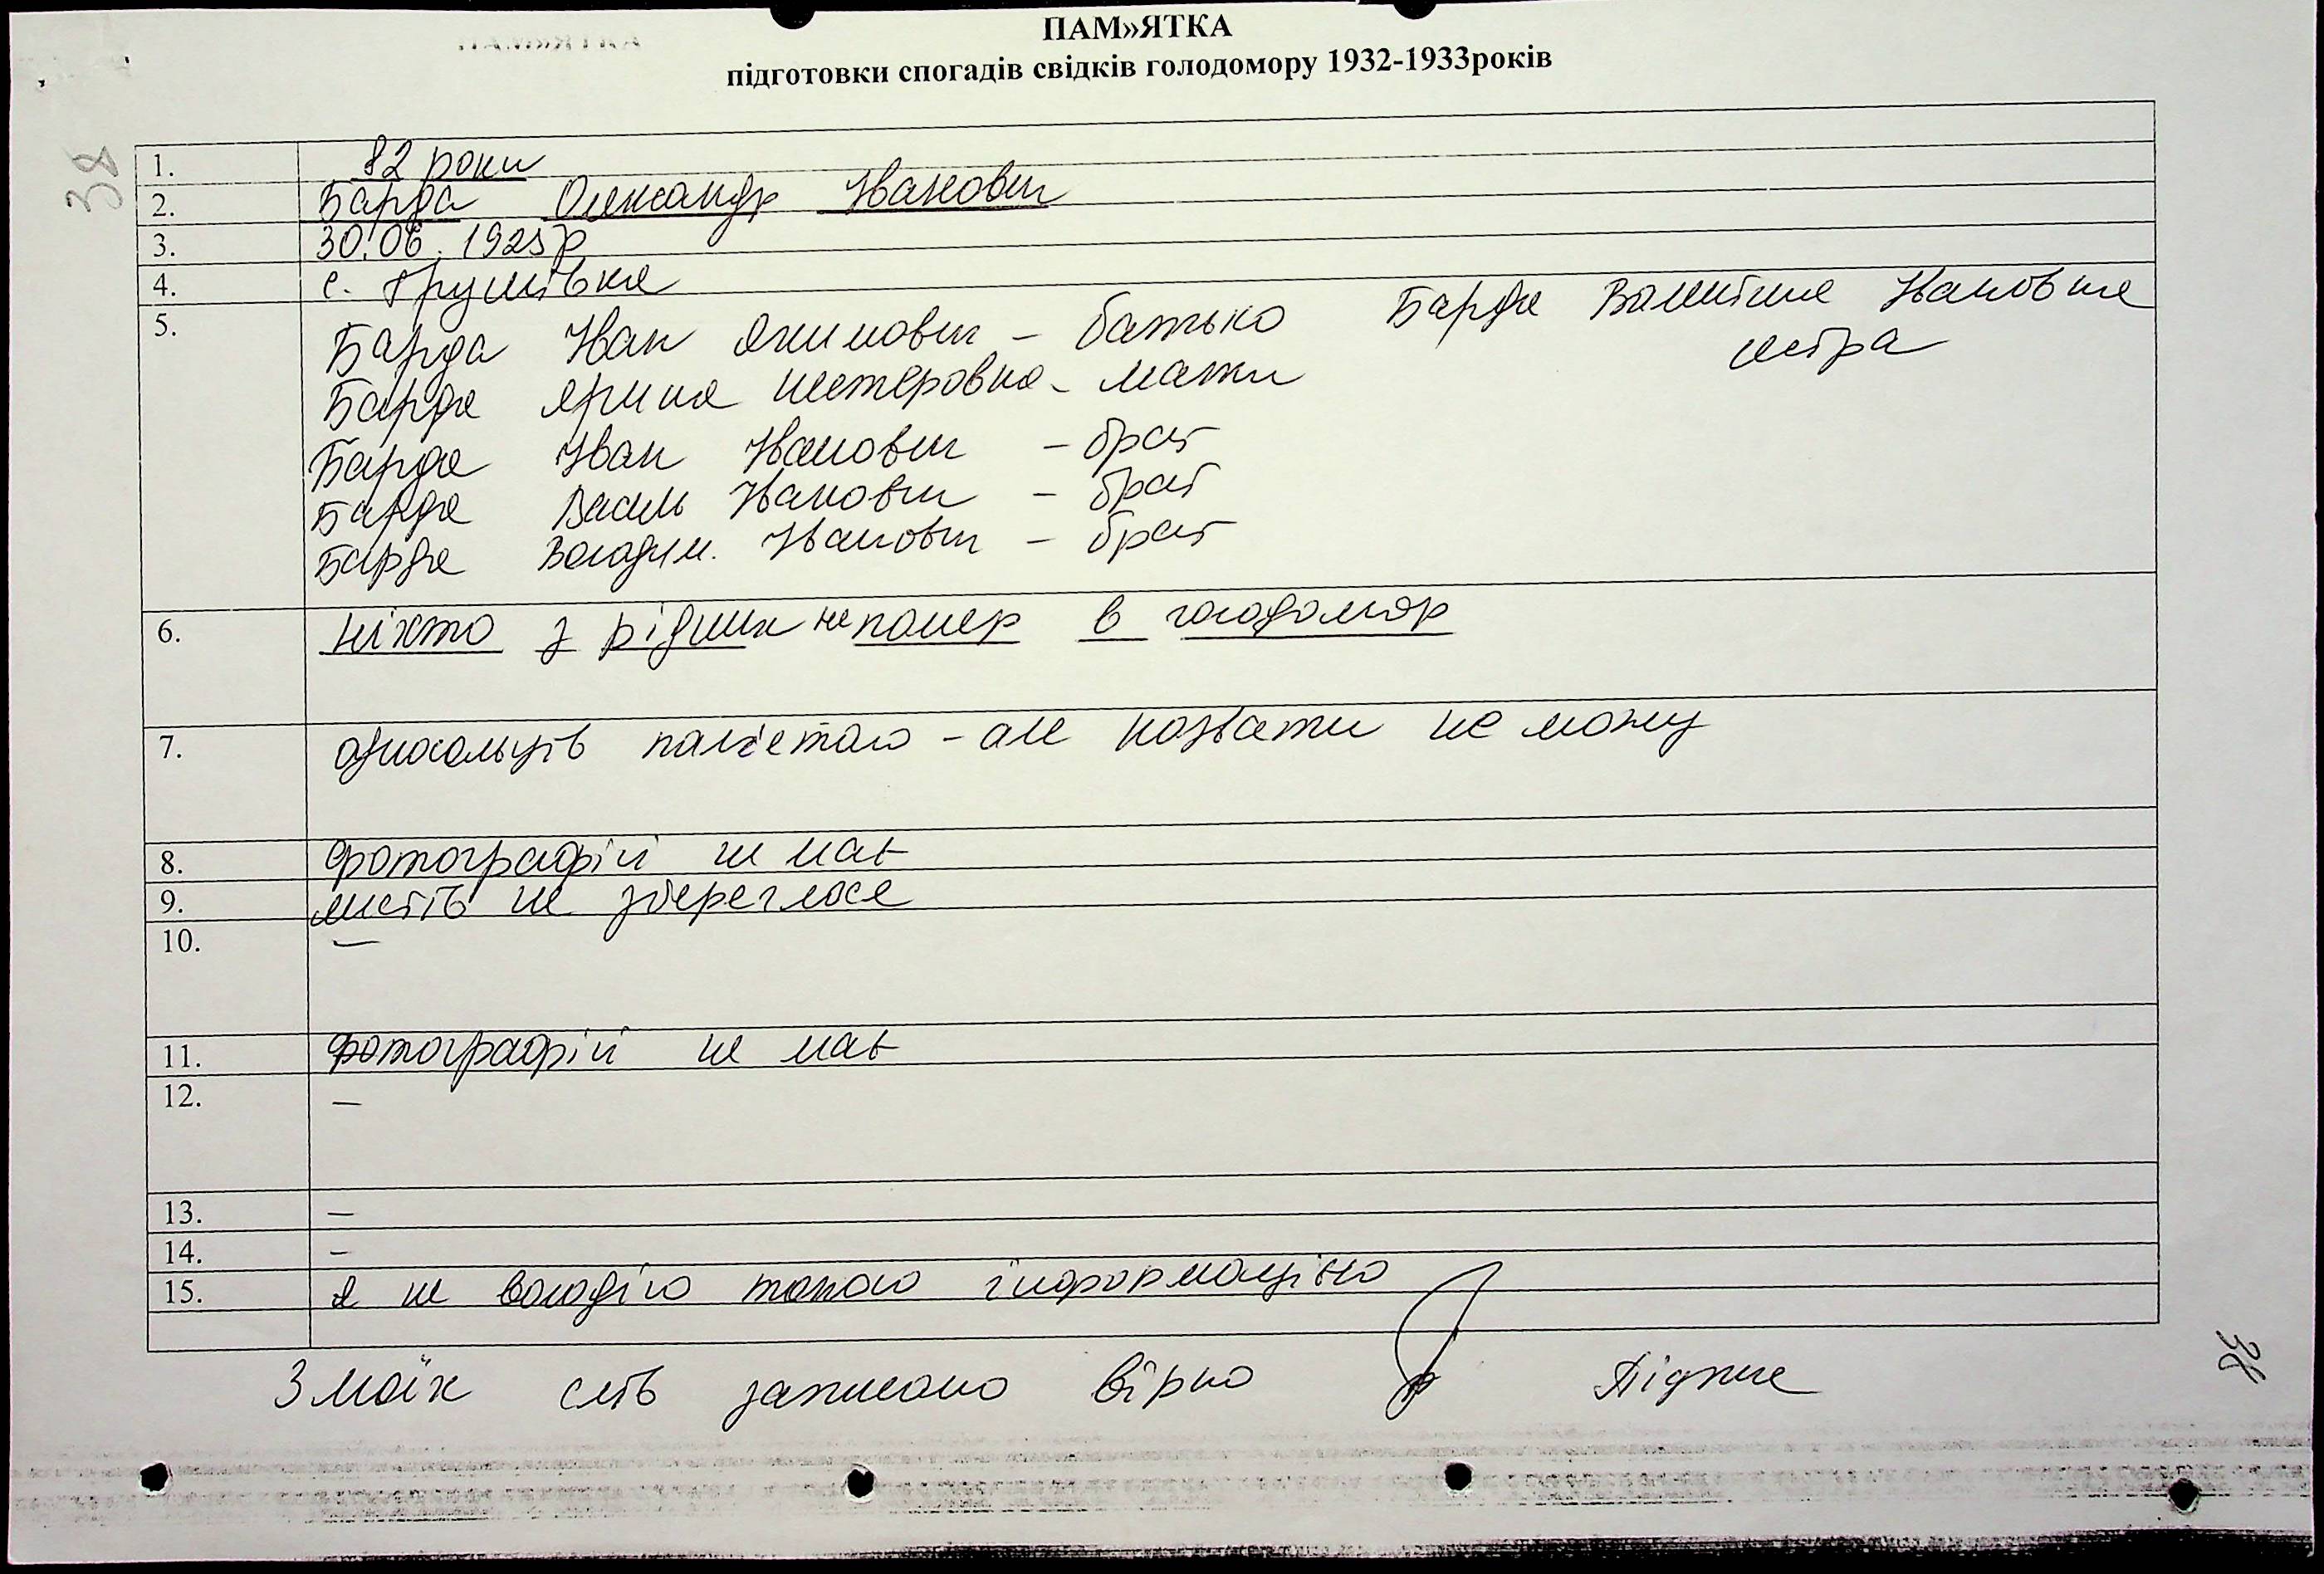 ПАМ»ЯТКА
підготовки спогадів свідків голодомору 1932-1933років
38
1. 82 роки
2. Барда Олександр Іванович
3. 30.06.1925р
4. с. Грушівка
5. Барда Іван Якимович - батько Барда Валентина Іванівна
сестра
Барда Ярина Нестеровна - мати
Барда Іван Іванович - брат
Барда Василь Іванович - брат
Барда Володим. Іванович - брат
6. ніхто з рідних не помер в голодомор
7. односельців пам'ятаю - але назвати не можу
8. фотографій не має
9. листів не збереглося
10. –
11. фотографій не має
12. –
13. –
14. –
15. я не володію такою інформацією
З моїх слів записано вірно